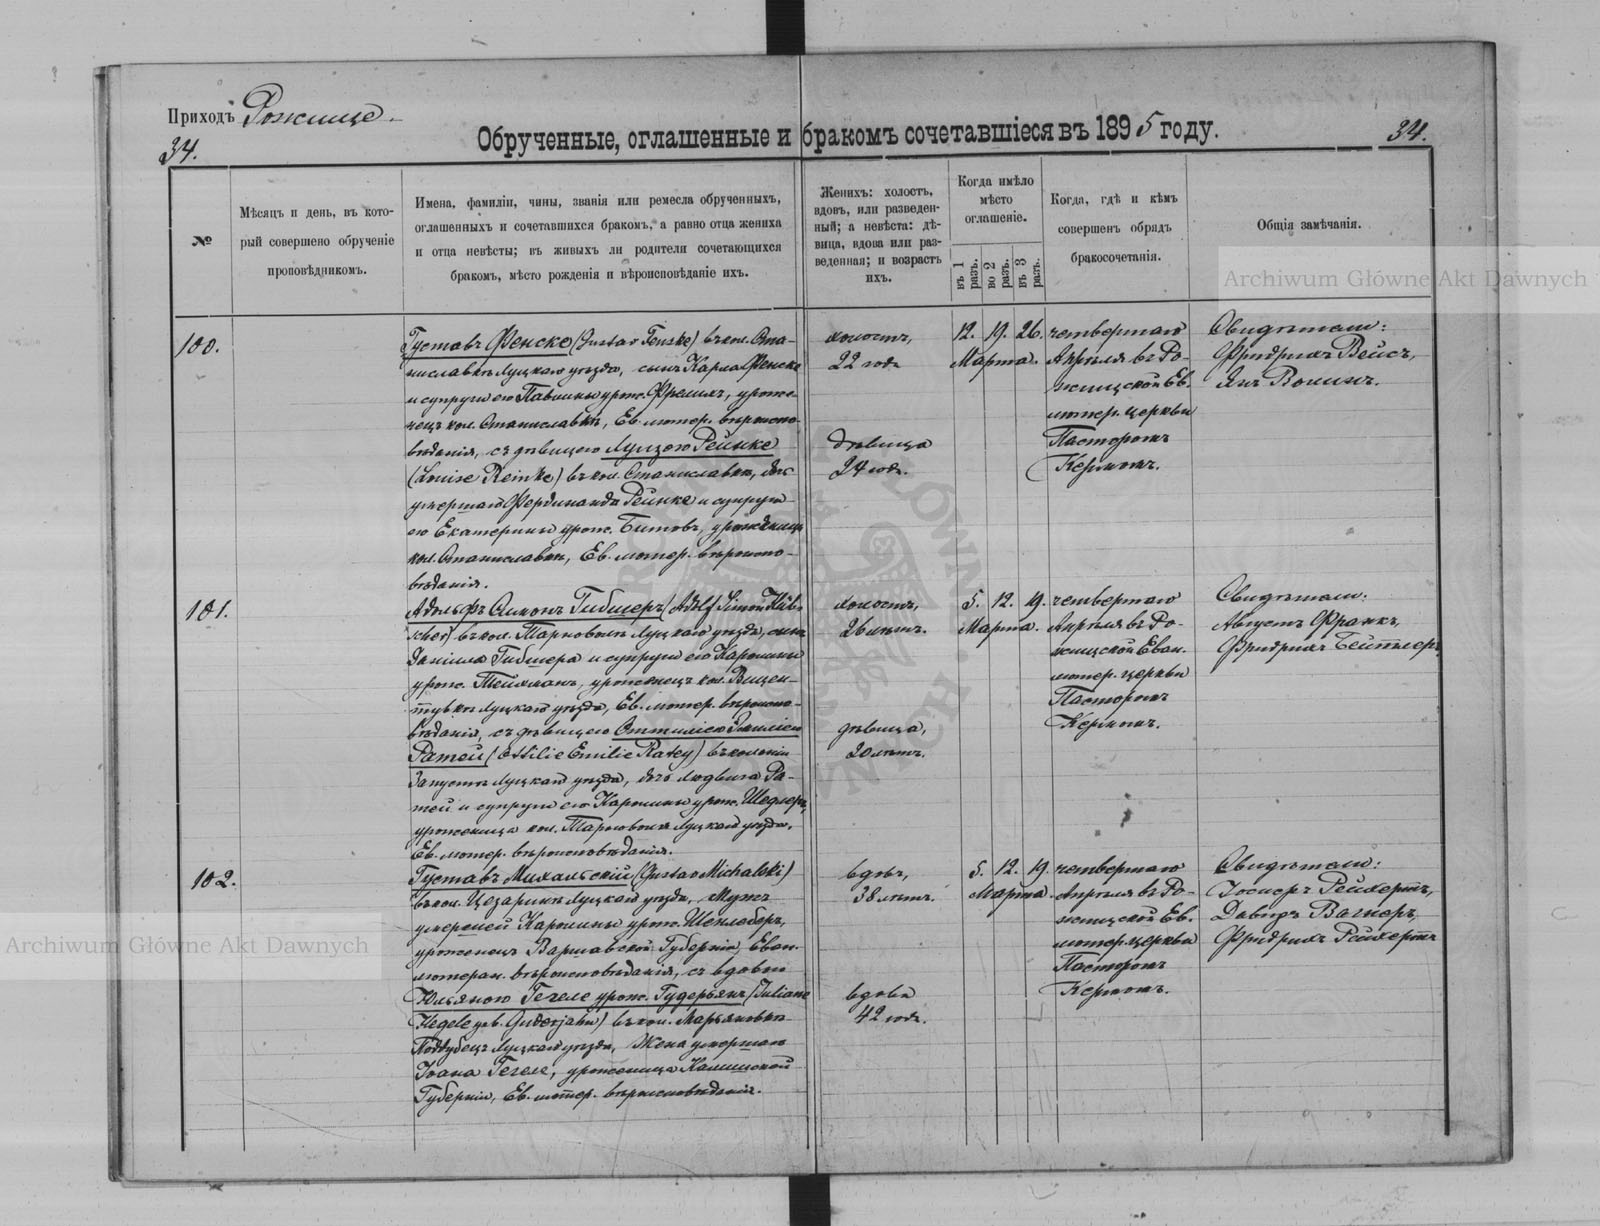 Приходъ Рожище
34.
Обрученные, оглашенные и бракомъ сочетавшіеся въ 1895 году.
34.
№
Мѣсяцъ и день, въ кото-
рый совершено обрученіе
проповѣдникомъ.
Имена, фамиліи, чины, званія или ремесла обрученныхъ,
оглашенныхъ и сочетавшихся бракомъ, а равно отца жениха
и отца невѣсты; въ живыхъ ли родители сочетающихся
бракомъ, мѣсто рожденія и вѣроисповѣданіе ихъ.
Женихъ: холостъ,
вдовъ, или разведен-
ный; а невѣста: дѣ-
вица, вдова или раз-
веденная; и возрастъ
ихъ.
Когда имѣло
мѣсто
оглашеніе.
въ 1 разъ.
во 2 разъ.
въ 3 разъ.
Когда, гдѣ и кѣмъ
совершенъ обрядъ
бракосочетанія.
Общія замѣчанія.
100.
Густавъ Фенске (Gustav Fenske) въ кол. Ста-
ниславкѣ Луцкаго уѣзда, сынъ Карла Фенске
и супруги его Павлины урож. Фрелихъ, уроже-
нецъ кол. Станиславки, Ев. лютер. вѣроиспо-
вѣданія, съ дѣвицею Луизою Рейнке
(Louise Reinke) въ кол. Станиславкѣ, дочь
умершаго Фердинанда Рейнке и супруги
его Екатерины урож. Битовъ, уроженица
кол. Станиславки, Ев. лютер. вѣроиспо-
вѣданія.
холостъ,
22 годъ
дѣвица
24 годъ.
12. 19. 26.
Марта.
четвертаго
Апрѣля въ Ро-
жищской Ев.
лютер. церкви
Пасторомъ
Кермомъ.
Свидѣтели:
Фридрихъ Вейсъ,
Янъ Волинъ.
101.
Адольфъ Симонъ Гибшеръ (Adolf Simon Hüb-
scher) въ кол. Тарновкѣ Луцкаго уѣзда, сынъ
Даніила Гибшера и супруги его Каролины
урож. Тейхманъ, уроженецъ кол. Вицен-
товки Луцкаго уѣзда, Ев. лютер. вѣроиспо-
вѣданія, съ дѣвицею Оттиліею Эмиліею
Ратей (Ottilie Emilie Ratey) въ колоніи
Запустъ Луцкаго уѣзда, дочь Людвига Ра-
тей и супруги его Каролины урож. Шедлеръ,
уроженица кол. Тарновки Луцкаго уѣзда,
Ев. лютер. вѣроисповѣданія.
холостъ,
26 лѣтъ.
дѣвица,
20 лѣтъ.
5. 12. 19.
Марта.
четвертаго
Апрѣля въ Ро-
жищской Еван.
лютер. церкви
Пасторомъ
Кермомъ.
Свидѣтели:
Августъ Франкъ,
Фридрихъ Бейтлеръ
102.
Густавъ Михальскій (Gustav Michalski)
въ кол. Цезаринѣ Луцкаго уѣзда, Мужъ
умершей Каролины урож. Шенлаберъ,
уроженецъ Варшавской Губерніи, Еван.
лютеран. вѣроисповѣданія, съ вдовою
Юльяною Гегеле урож. Гудерьянъ (Juliane
Hegele geb. Guderjahn) въ кол. Марьяновкѣ
Поддубецъ Луцкаго уѣзда, Жена умершаго
Іоана Гегеле, уроженица Калишской
Губерніи, Ев. лютер. вѣроисповѣданія.
вдовъ,
38 лѣтъ.
вдова
42 годъ.
5. 12. 19.
Марта.
четвертаго
Апрѣля въ Ро-
жищской Ев.
лютер. церкви
Пасторомъ
Кермомъ.
Свидѣтели:
Іосифъ Рейхертъ,
Давидъ Вагнеръ,
Фридрихъ Рейхертъ
Archiwum Główne Akt Dawnych
Archiwum Główne Akt Dawnych